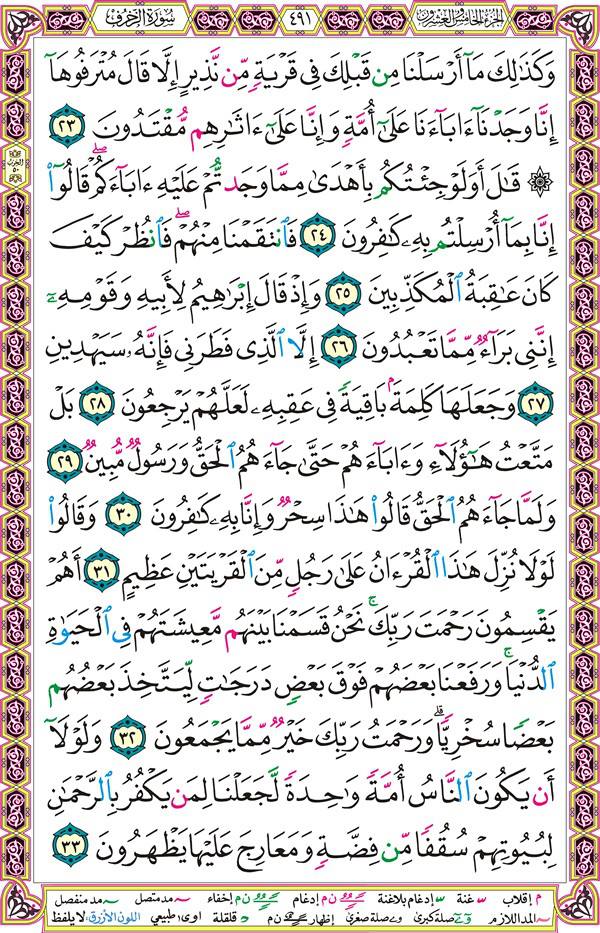 الجزء الخامس والعشرون
٤٩١
سورة الزخرف
وَكَذَٰلِكَ مَآ أَرْسَلْنَا مِن قَبْلِكَ فِى قَرْيَةٍ مِّن نَّذِيرٍ إِلَّا قَالَ مُتْرَفُوهَآ
إِنَّا وَجَدْنَآ ءَابَآءَنَا عَلَىٰٓ أُمَّةٍ وَإِنَّا عَلَىٰٓ ءَاثَٰرِهِم مُّقْتَدُونَ ٢٣
۞ قَٰلَ أَوَلَوْ جِئْتُكُم بِأَهْدَىٰ مِمَّا وَجَدتُّمْ عَلَيْهِ ءَابَآءَكُمْ ۖ قَالُوٓا۟
إِنَّا بِمَآ أُرْسِلْتُم بِهِۦ كَٰفِرُونَ ٢٤ فَٱنتَقَمْنَا مِنْهُمْ ۖ فَٱنظُرْ كَيْفَ
كَانَ عَٰقِبَةُ ٱلْمُكَذِّبِينَ ٢٥ وَإِذْ قَالَ إِبْرَٰهِيمُ لِأَبِيهِ وَقَوْمِهِۦٓ
إِنَّنِى بَرَآءٌ مِّمَّا تَعْبُدُونَ ٢٦ إِلَّا ٱلَّذِى فَطَرَنِى فَإِنَّهُۥ سَيَهْدِينِ
٢٧ وَجَعَلَهَا كَلِمَةًۢ بَاقِيَةً فِى عَقِبِهِۦ لَعَلَّهُمْ يَرْجِعُونَ ٢٨ بَلْ
مَتَّعْتُ هَٰٓؤُلَآءِ وَءَابَآءَهُمْ حَتَّىٰ جَآءَهُمُ ٱلْحَقُّ وَرَسُولٌ مُّبِينٌ ٢٩
وَلَمَّا جَآءَهُمُ ٱلْحَقُّ قَالُوا۟ هَٰذَا سِحْرٌ وَإِنَّا بِهِۦ كَٰفِرُونَ ٣٠ وَقَالُوا۟
لَوْلَا نُزِّلَ هَٰذَا ٱلْقُرْءَانُ عَلَىٰ رَجُلٍ مِّنَ ٱلْقَرْيَتَيْنِ عَظِيمٍ ٣١ أَهُمْ
يَقْسِمُونَ رَحْمَتَ رَبِّكَ ۚ نَحْنُ قَسَمْنَا بَيْنَهُم مَّعِيشَتَهُمْ فِى ٱلْحَيَوٰةِ
ٱلدُّنْيَا ۚ وَرَفَعْنَا بَعْضَهُمْ فَوْقَ بَعْضٍ دَرَجَٰتٍ لِّيَتَّخِذَ بَعْضُهُم
بَعْضًا سُخْرِيًّا ۗ وَرَحْمَتُ رَبِّكَ خَيْرٌ مِّمَّا يَجْمَعُونَ ٣٢ وَلَوْلَآ
أَن يَكُونَ ٱلنَّاسُ أُمَّةً وَٰحِدَةً لَّجَعَلْنَا لِمَن يَكْفُرُ بِٱلرَّحْمَٰنِ
لِبُيُوتِهِمْ سُقُفًا مِّن فِضَّةٍ وَمَعَارِجَ عَلَيْهَا يَظْهَرُونَ ٣٣
الحزب
٥٠
م إقلاب غنة إدغام بلاغنة ن م إدغام ن م إخفاء مد متصل مد منفصل
المد اللازم صلة كبرى صلة صغرى إظهار ن م قلقلة اوى طبيعي اللون الأزرق لا يلفظ